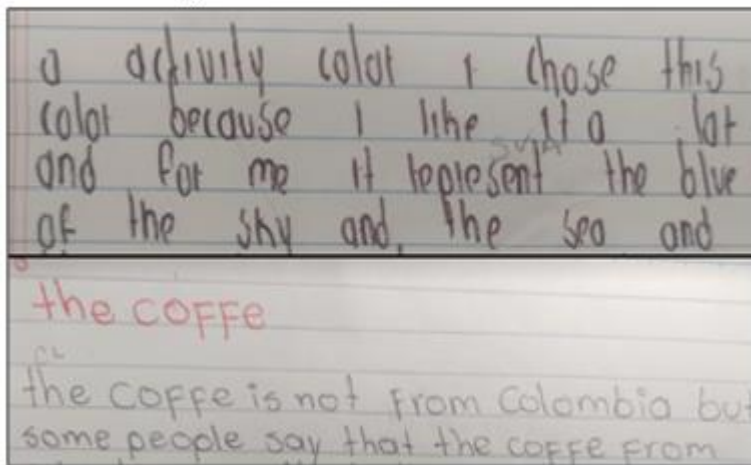 a activity color I chose this
color because I like it a lot
and for me it represent the blue
of the sky and, the sea and
the coffe
the coffe is not from Colombia but
some people say that the coffe from